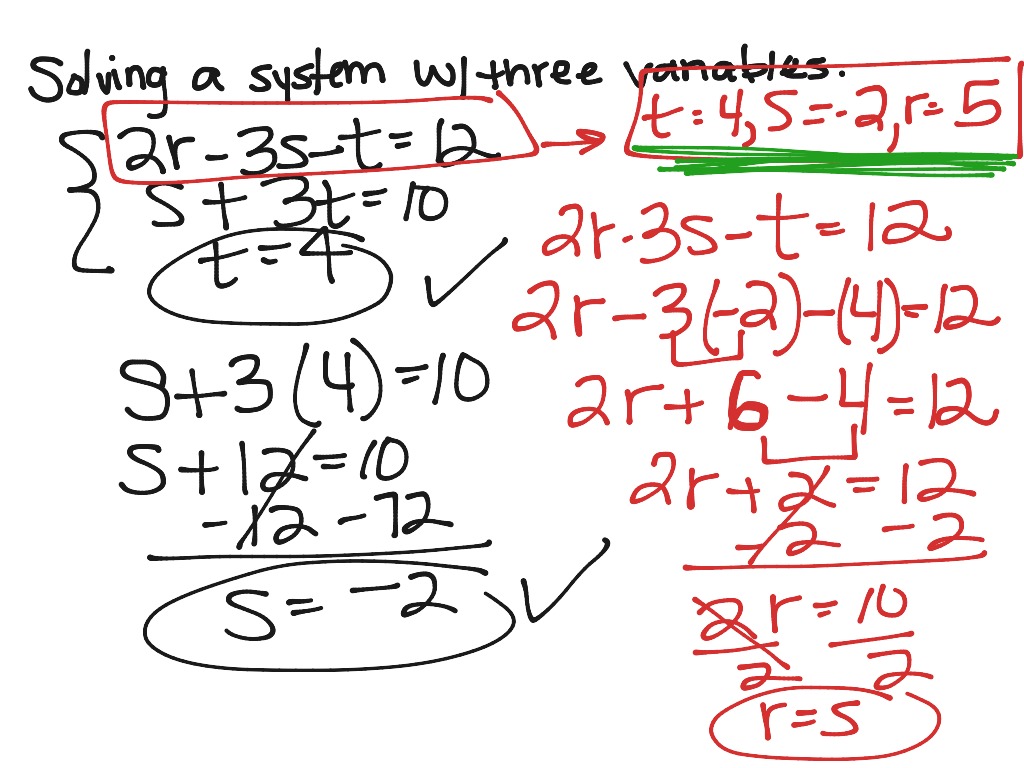 Solving a system w/ three variables.
2r - 3s - t = 12
t = 4, s = -2, r = 5
s + 3t = 10
t = 4
s + 3(4) = 10
s + 12 = 10
-12 -12
s = -2
2r - 3s - t = 12
2r - 3(-2) - (4) = 12
2r + 6 - 4 = 12
2r + 2 = 12
-2 -2
2r = 10
2 2
r = 5